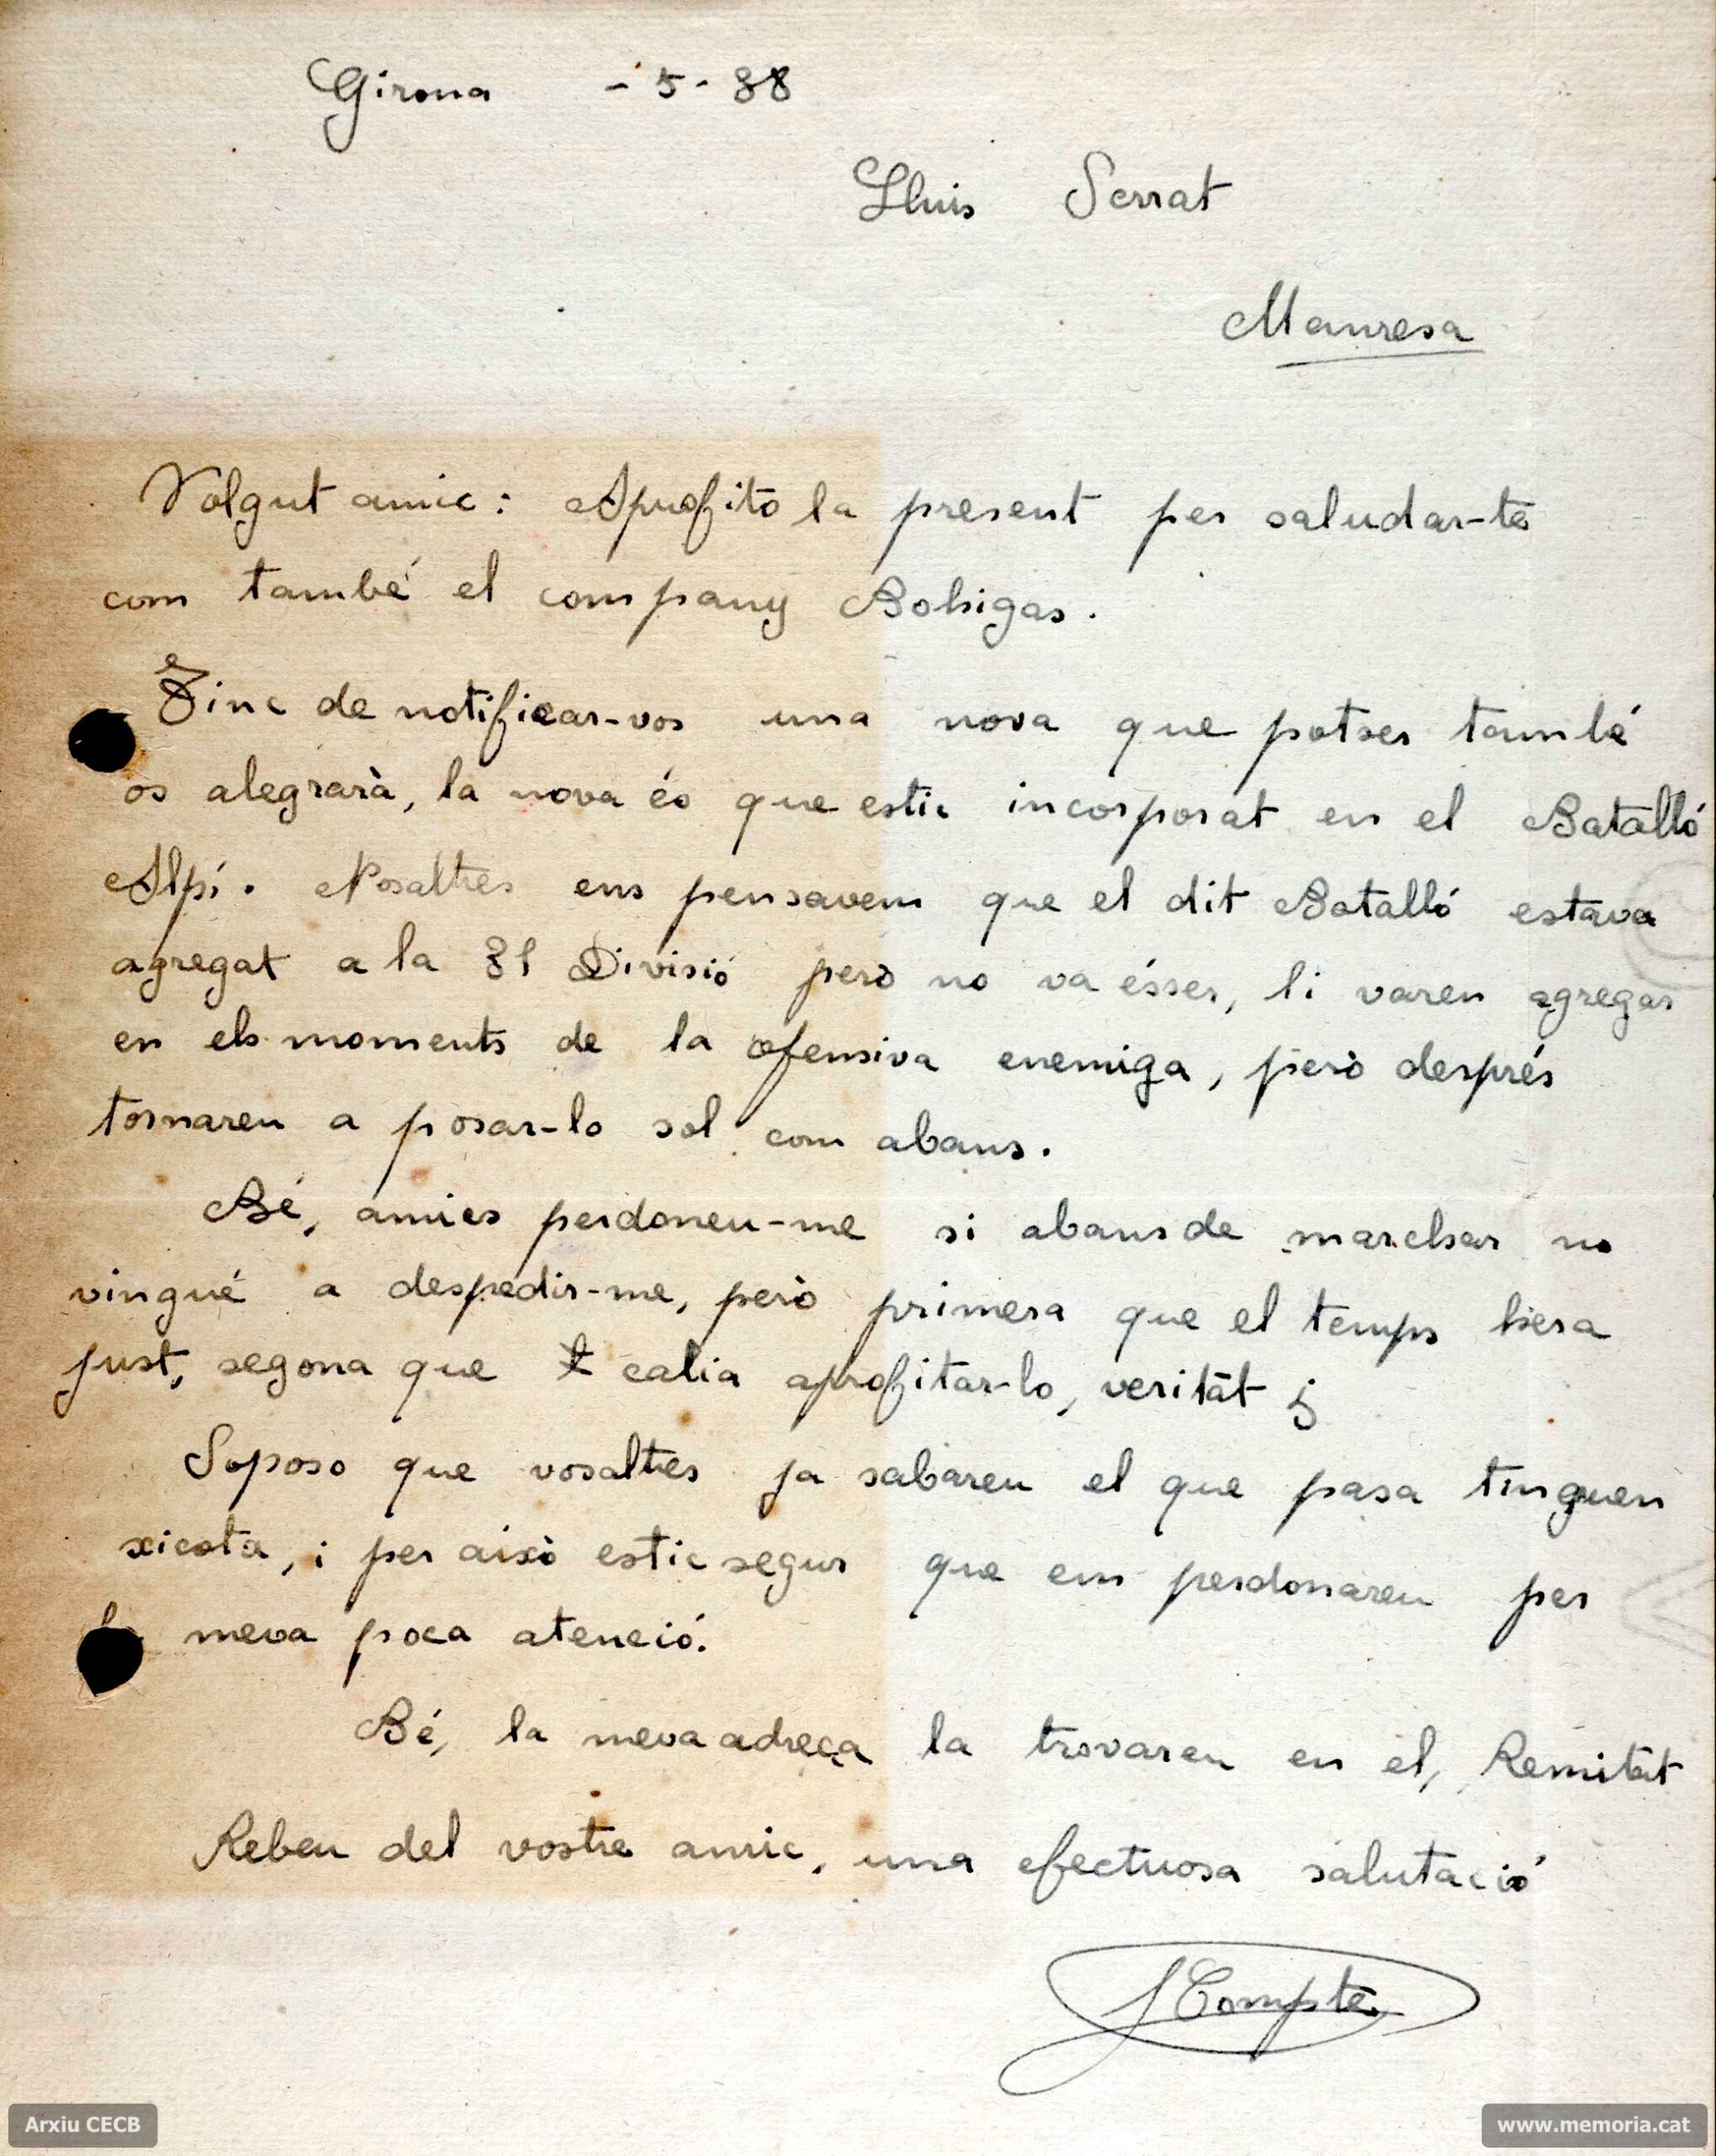 Girona - 5 - 38
Lluis Serrat
Manresa
Volgut amic: Aprofito la present per saludar-te
com també el company Bohigas.
Tinc de notificar-vos una nova que potser també
os alegrarà, la nova és que estic incorporat en el Batalló
Alpí. Nosaltres ens pensavem que el dit Batalló estava
agregat a la 31 Divisió però no va ésser, li varen agregar
en els moments de la ofensiva enemiga, però després
tornaren a posar-lo sol com abans.
Bé, amics perdoneu-me si abans de marchar no
vingué a despedir-me, però primera que el temps hera
just, segona que calia aprofitar-lo, veritat ¿
Soposo que vosaltres ja sabareu el que pasa tinguen
xicota, i per això estic segur que em perdonareu per
la meva poca atenció.
Bé, la meva adreça la trovareu en el, Remitat
Rebeu del vostre amic, una efectuosa salutació
J Compte
Arxiu CECB
www.memoria.cat